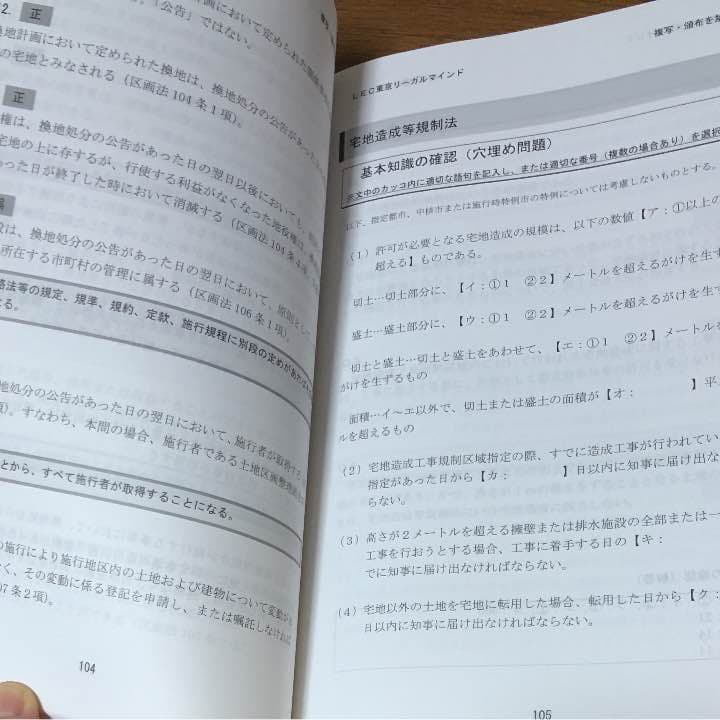 2. 正
換地計画において定められた換地は、換地処分の公告があった
の宅地とみなされる（区画法104条1項）。
正
権は、換地処分の公告があった日の翌日以後においても、
宅地の上に存するが、行使する利益がなくなった地役権は、
った日が終了した時において消滅する（区画法104条4項、
設は、換地処分の公告があった日の翌日において、原則として
所在する市町村の管理に属する（区画法106条1項）。
法等の規定、規準、規約、定款、施行規程に別段の定めがあれば
る。
地処分の公告があった日の翌日において、施行者が取得する
項）。すなわち、本問の場合、施行者である土地区画整理
とから、すべて施行者が取得することになる。
の施行により施行地区内の土地および建物について変動が
く、その変動に係る登記を申請し、または嘱託しなければ
07条2項）。
104
複写・頒布を
LEC東京リーガルマインド
宅地造成等規制法
基本知識の確認（穴埋め問題）
※文中のカッコ内に適切な語句を記入し、または適切な番号（複数の場合あり）を選択
以下、指定都市、中核市または施行時特例市の特例については考慮しないものとする。
（1）許可が必要となる宅地造成の規模は、以下の数値【ア：①以上の
超える】ものである。
切土…切土部分に、【イ：①1 ②2】メートルを超えるがけを生ず
盛土…盛土部分に、【ウ：①1 ②2】メートルを超えるがけを生ず
切土と盛土…切土と盛土をあわせて、【エ：①1 ②2】メートルを
がけを生ずるもの
面積…イ～エ以外で、切土または盛土の面積が【オ： 】平
ルを超えるもの
（2）宅地造成工事規制区域指定の際、すでに造成工事が行われてい
指定があった日から【カ： 】日以内に知事に届け出な
らない。
（3）高さが2メートルを超える擁壁または排水施設の全部または一
工事を行おうとする場合、工事に着手する日の【キ：
でに知事に届け出なければならない。
（4）宅地以外の土地を宅地に転用した場合、転用した日から【ク：
日以内に知事に届け出なければならない。
105